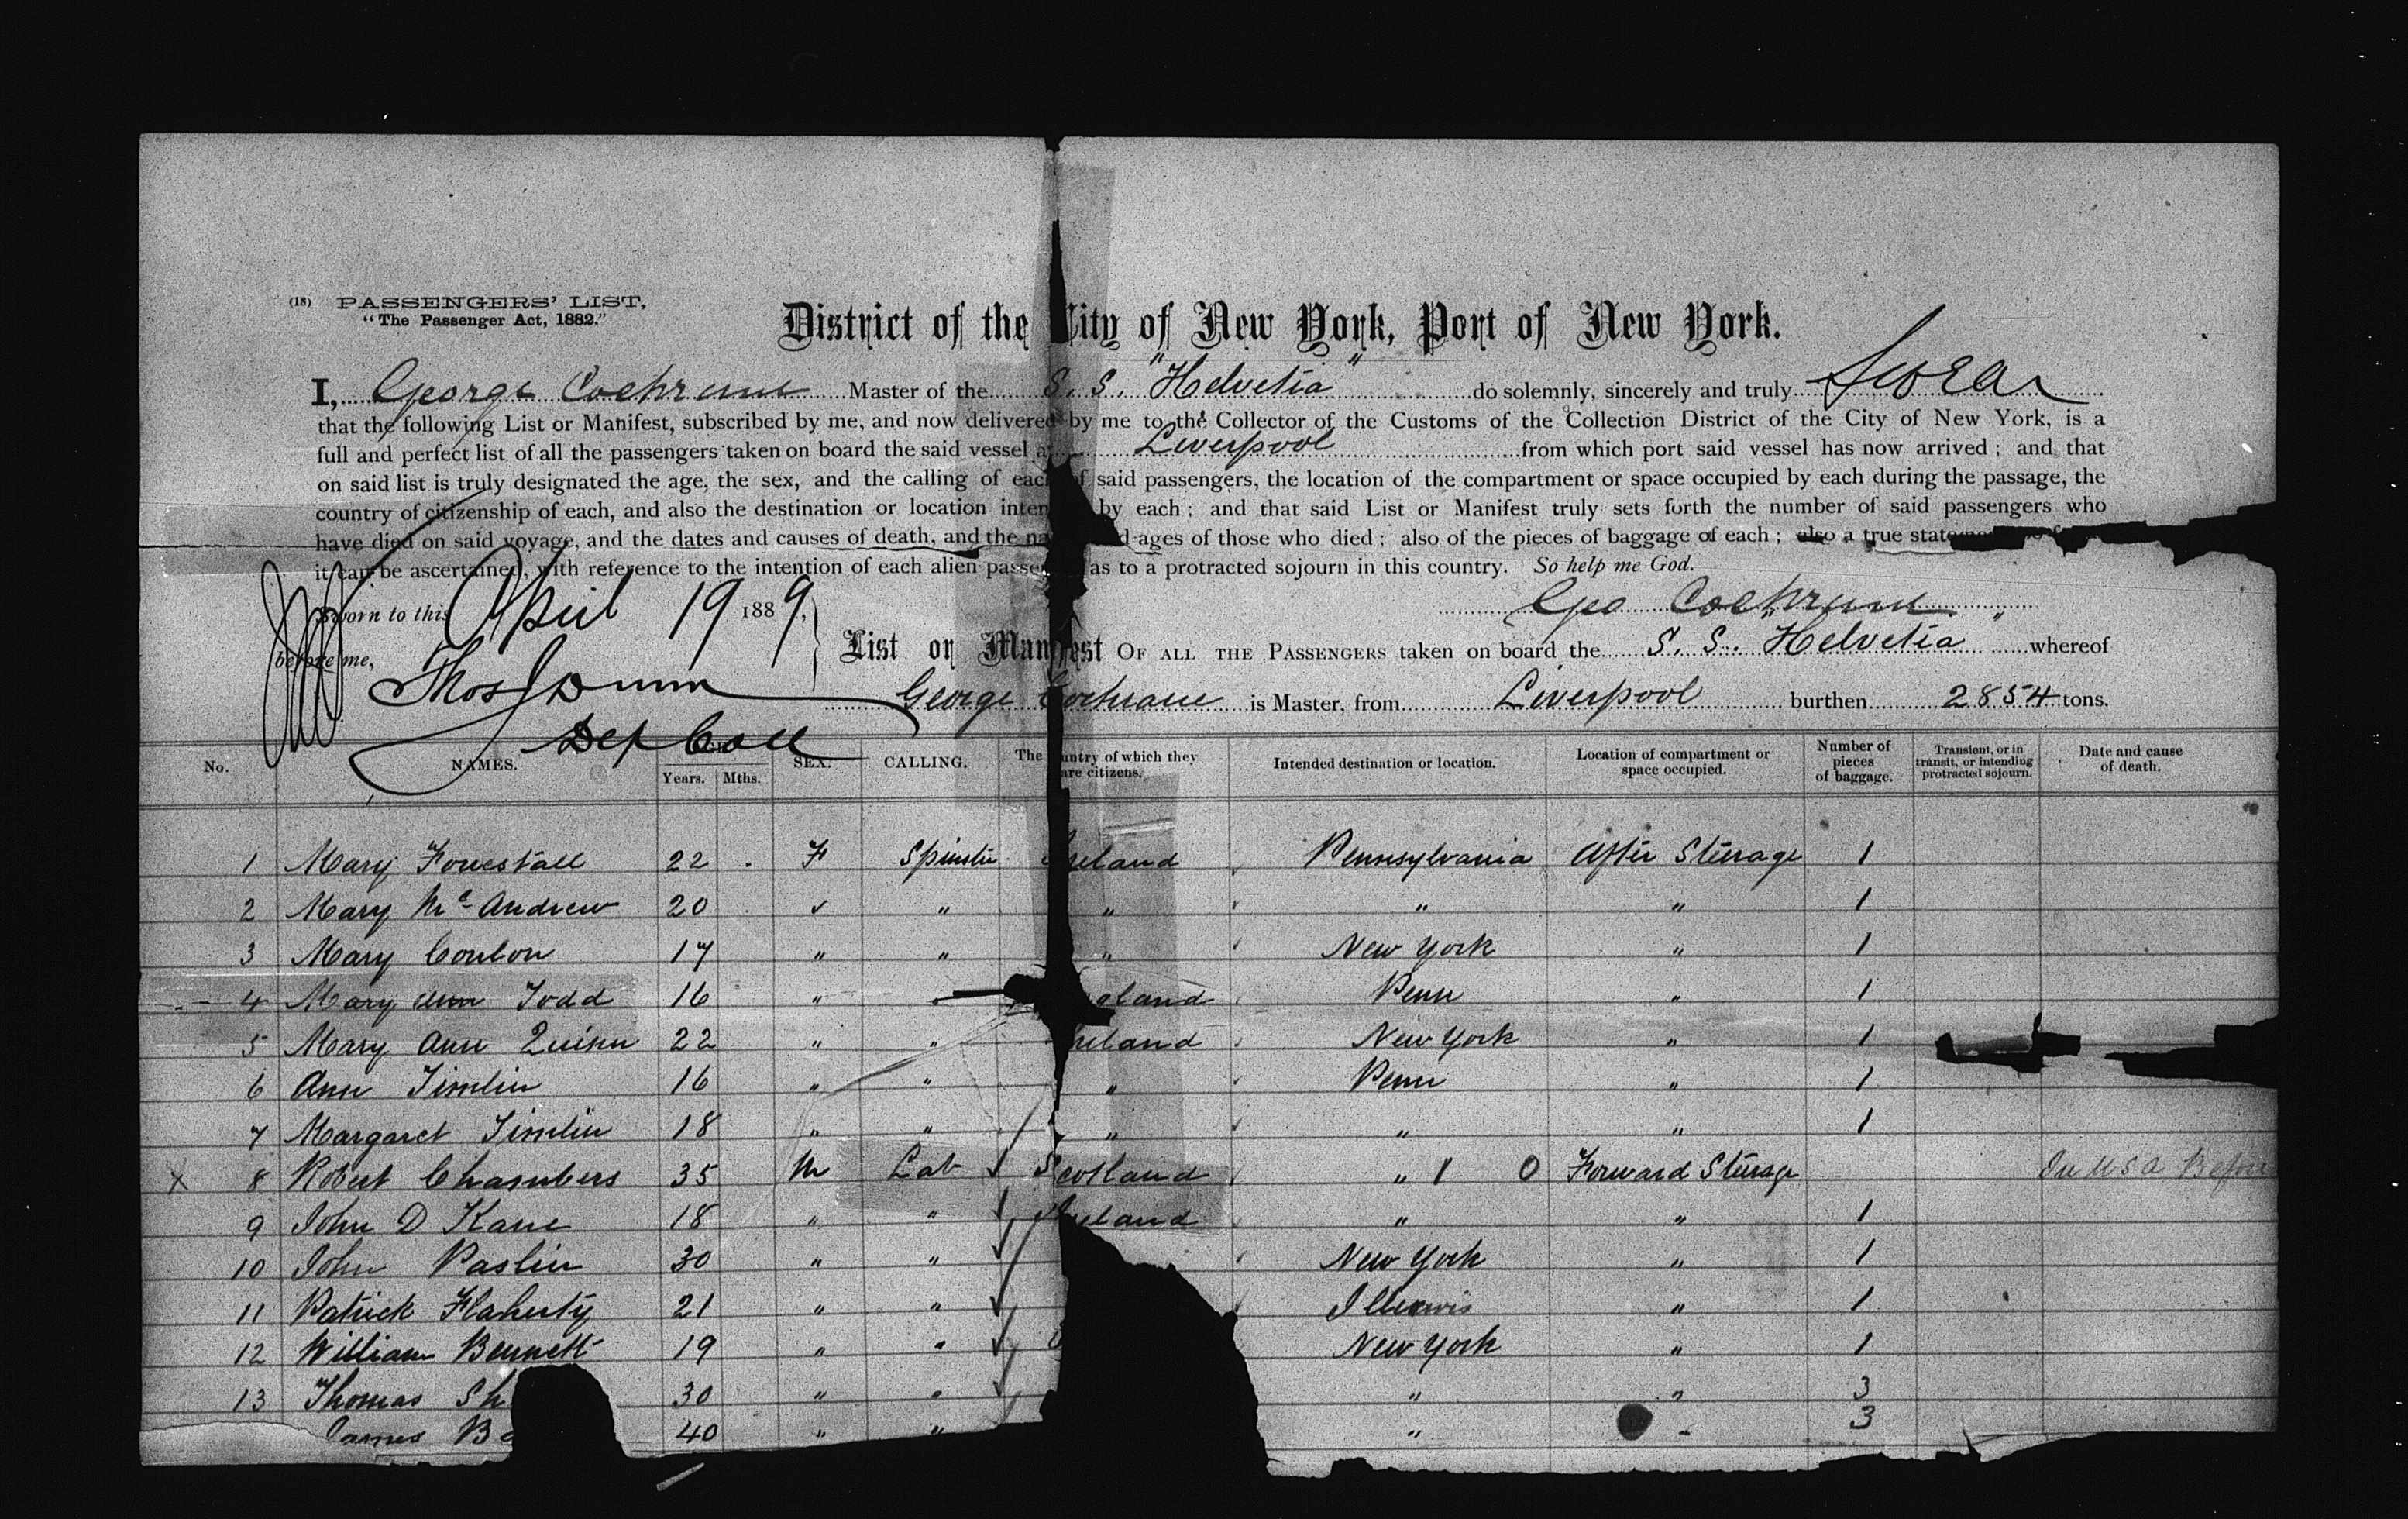 (18) PASSENGERS' LIST,
"The Passenger Act, 1882."
District of the City of New York, Port of New York.
I, George Cochrane Master of the S. S. "Helvetia" do solemnly, sincerely and truly Swear
that the following List or Manifest, subscribed by me, and now delivered by me to the Collector of the Customs of the Collection District of the City of New York, is a
full and perfect list of all the passengers taken on board the said vessel a Liverpool from which port said vessel has now arrived ; and that
on said list is truly designated the age, the sex, and the calling of each of said passengers, the location of the compartment or space occupied by each during the passage, the
country of citizenship of each, and also the destination or location inten by each ; and that said List or Manifest truly sets forth the number of said passengers who
have died on said voyage, and the dates and causes of death, and the na d ages of those who died ; also of the pieces of baggage of each ; also a true state
it can be ascertained, with reference to the intention of each alien passe as to a protracted sojourn in this country. So help me God.
Sworn to this April 19 1889,
Geo Cochrane
before me, Thos J Dunn
Dep Coll
List or Manifest OF ALL THE PASSENGERS taken on board the S. S. "Helvetia" whereof
George Cochrane is Master, from Liverpool burthen 2854 tons.
No. NAMES. Years. Mths. SEX. CALLING. The untry of which they are citizens. Intended destination or location. Location of compartment or space occupied. Number of pieces of baggage. Transient, or in transit, or intending protracted sojourn. Date and cause of death.
1 Mary Forrestall 22 F Spinster Ireland Pennsylvania After Steerage 1
2 Mary Mc Andrew 20 " " " " " 1
3 Mary Conlon 17 " " " New York " 1
4 Mary Ann Todd 16 " " England Penn " 1
5 Mary Ann Quinn 22 " " Ireland New York " 1
6 Ann Timlin 16 " " " Penn " 1
7 Margaret Timlin 18 " " " " " 1
X 8 Robert Chambers 35 M Lab Scotland " 1 0 Forward Steerage In U S A Before
9 John D Kane 18 " " Ireland " " 1
10 John Paslin 30 " " New York " 1
11 Patrick Flaherty 21 " " Illinois " 1
12 William Bennett 19 " " New York " 1
13 Thomas Sh 30 " " " " 3
James B 40 " " " " 3